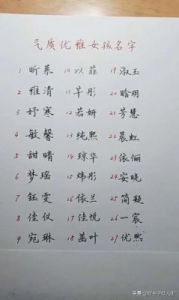 气质优雅女孩名字
1 昕慕 10 以菲 19 淑玉
2 雅清 11 芊彤 20 晴明
3 妤寒 12 若妍 21 芳慧
4 敏馨 13 纯熙 22 晨虹
5 甜晴 14 琼华 23 依俪
6 梦瑶 15 炜彤 24 安晓
7 钰雯 16 依兰 25 简凝
8 佳仪 17 佳悦 26 一宸
9 宛琳 18 茜叶 27 优熙